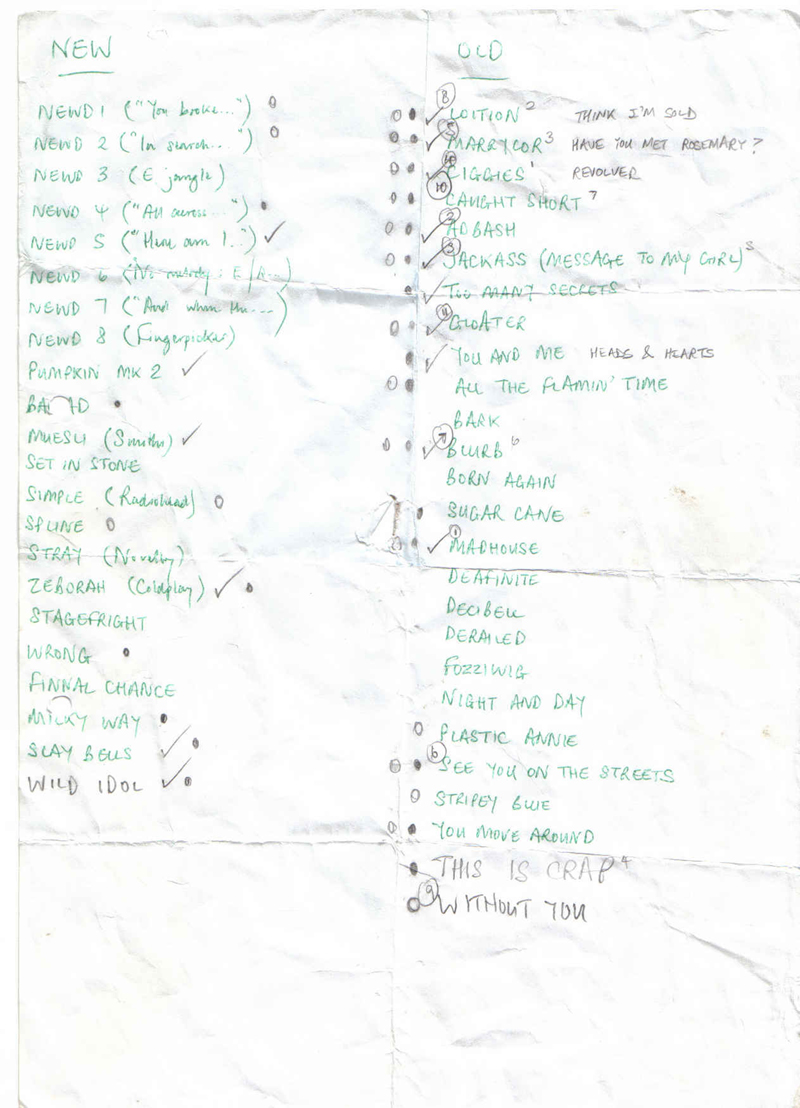 NEW
NEWD 1 ("You broke...")
NEWD 2 ("In search...")
NEWD 3 (E jangle)
NEWD 4 ("All across...")
NEWD 5 ("Here am I..")
NEWD 6 (No melody: E/A
NEWD 7 ("And when the...)
NEWD 8 (Fingerpicker)
PUMPKIN MK 2
MUESLI (Smiths)
SET IN STONE
SIMPLE (Radiohead)
SPLINE
STRAY (Novelty)
ZEBORAH (Coldplay)
STAGEFRIGHT
WRONG
FINNAL CHANCE
MILKY WAY
SLAY BELLS
WILD IDOL
OLD
8 LOITION 2 THINK I'M SOLD
5 MARRYCOR 3 HAVE YOU MET ROSEMARY?
CIGGIES 1 REVOLVER
10 CAUGHT SHORT 7
2 ADBASH
3 JACKASS (MESSAGE TO MY GIRL) 5
TOO MANY SECRETS
11 GLOATER
YOU AND ME HEADS & HEARTS
ALL THE FLAMIN' TIME
BARK
7 BLURB 6
BORN AGAIN
SUGAR CANE
1 MADHOUSE
DEAFINITE
DECIBELL
DERAILED
FOZZIWIG
NIGHT AND DAY
PLASTIC ANNIE
6 SEE YOU ON THE STREETS
STRIPEY BLUE
YOU MOVE AROUND
THIS IS CRAP 4
9 WITHOUT YOU